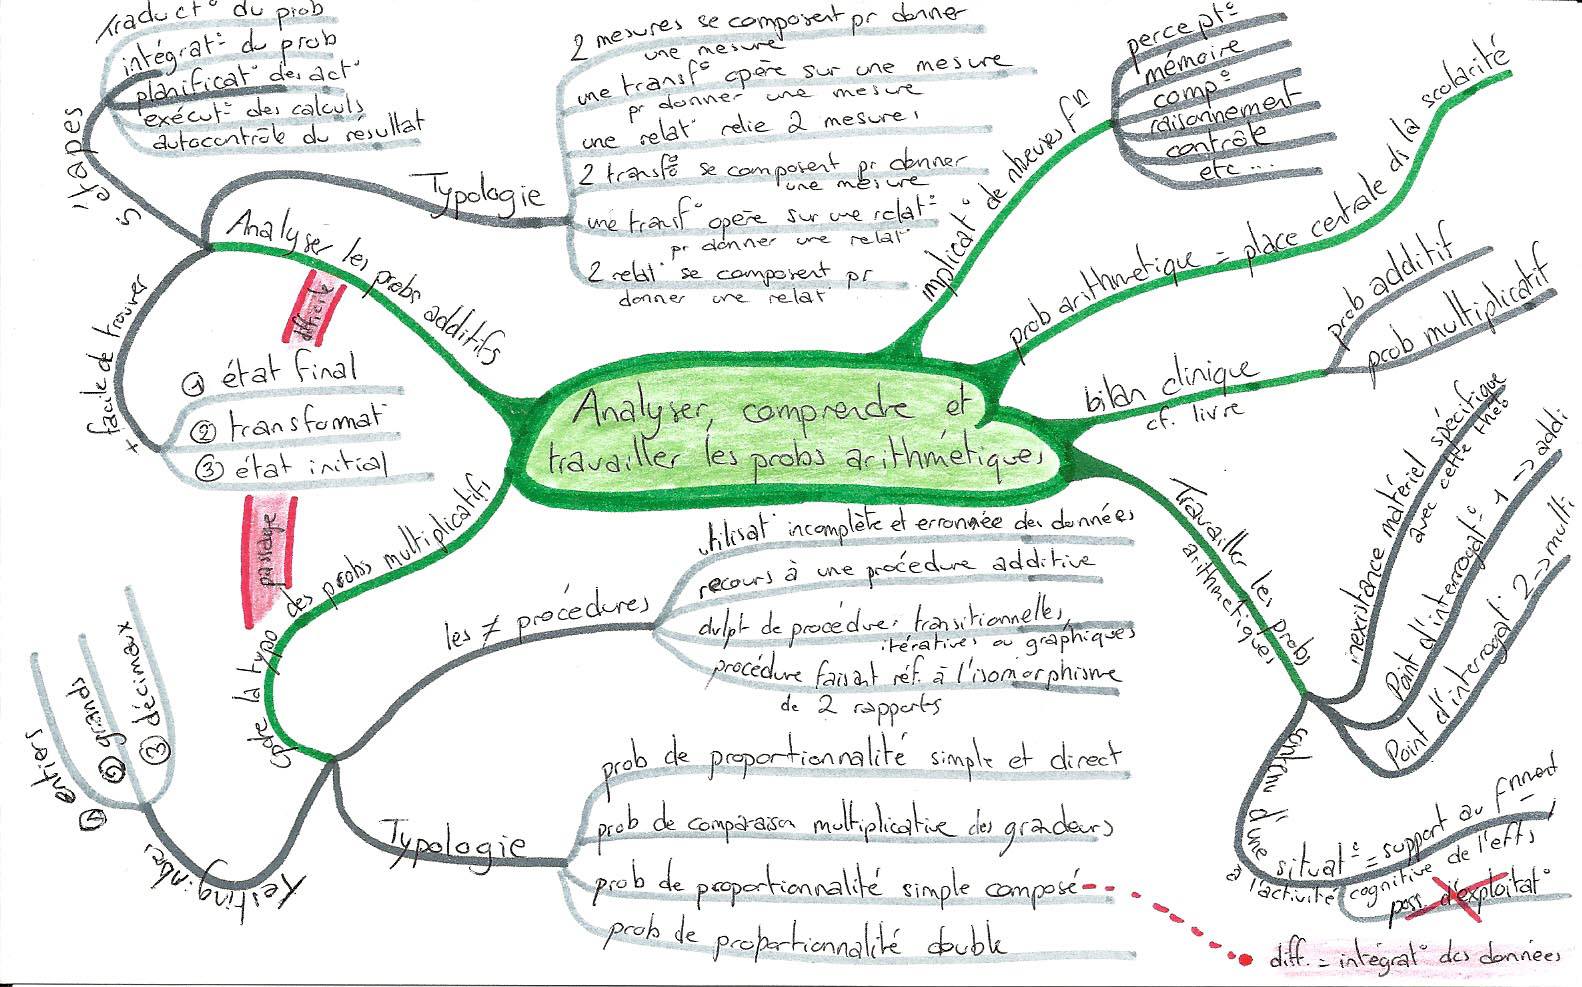 Analyser, comprendre et
travailler les probs arithmétiques
Analyser les probs additifs
difficile
5 étapes
traduct° du prob
intégrat° du prob
planificat° des act°
exécut° des calculs
autocontrôle du résultat
Typologie
2 mesures se composent pr donner
une mesure
une transf° opère sur une mesure
pr donner une mesure
une relat° relie 2 mesures
2 transf° se composent pr donner
une mesure
une transf° opère sur une relat°
pr donner une relat°
2 relat° se composent pr
donner une relat°
+ facile de trouver
① état final
② transformat°
③ état initial
passage
implicat° de nbeuses f^n
percept°
mémoire
comp°
raisonnement
contrôle
etc...
prob arithmétique = place centrale ds la scolarité
bilan clinique
cf. livre
prob additif
prob multiplicatif
travailler les probs
arithmétiques
inexistance matériel spécifique
avec cette
Point d'interrogat° 1 -> addi
Point d'interrogat° 2 -> multi
contenu d'une situat° = support au fnnent
à l'activité cognitive de l'efts
poss. d'exploitat°
des probs multiplicatifs
la typo
les ≠ procédures
utilisat° incomplète et erronnée des données
recours à une procédure additive
dvlpt de procédures transitionnelles,
itératives ou graphiques
procédure faisant réf. à l'isomorphisme
de 2 rapports
Typologie
prob de proportionnalité simple et direct
prob de comparaison multiplicative des grandeurs
prob de proportionnalité simple composé
diff. = intégrat° des données
prob de proportionnalité double
Testing nbres
① entiers
② grands
③ décimaux